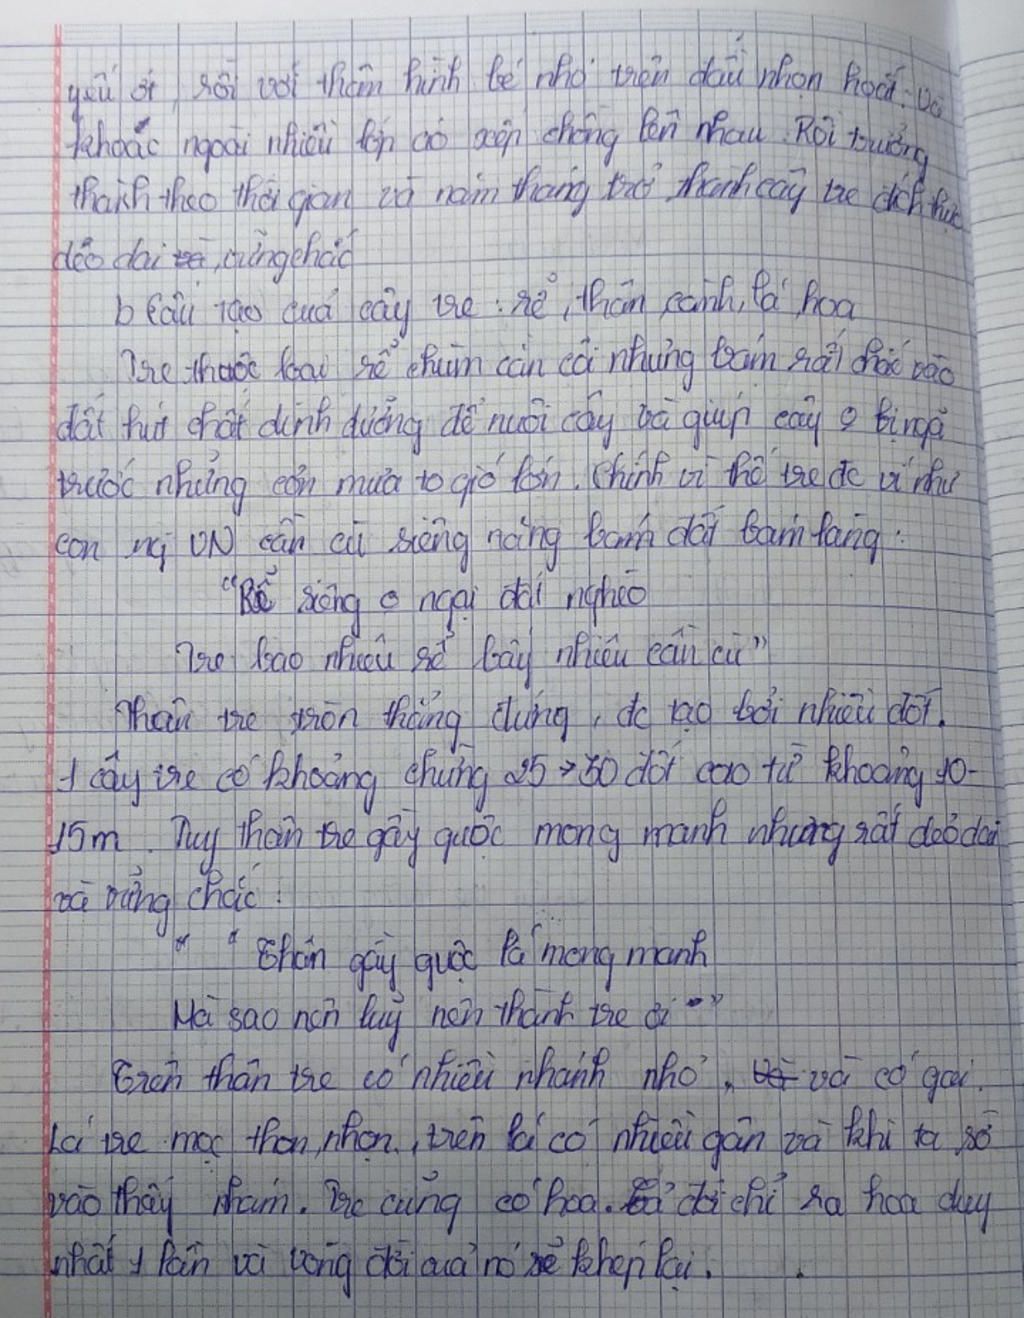 yếu ớt, rồi với thân hình bé nhỏ trên đầu nhọn hoắt. Và
khoác ngoài nhiều lớp áo xếp chồng lên nhau. Rồi trưởng
thành theo thời gian và năm tháng trở thành cây tre đích thực
dẻo dai, cứng chắc
b Cấu tạo của cây tre: rễ, thân, cành, lá, hoa
Tre thuộc loại rễ chùm cằn cỗi nhưng bám rất chắc vào
đất hút chất dinh dưỡng để nuôi cây và giúp cây o bị ngã
trước những cơn mưa to gió lớn. Chính vì thế tre đc ví như
con ng VN cần cù siêng năng bám đất bám làng:
"Rễ siêng o ngại đất nghèo
Tre bao nhiêu rễ bấy nhiêu cần cù"
Thân tre tròn thẳng đứng, đc tạo bởi nhiều đốt.
1 cây tre có khoảng chừng 25 → 30 đốt cao từ khoảng 10-
15m. Tuy thân tre gầy guộc mong manh nhưng rất dẻo dai
và vững chắc:
" "Thân gầy guộc lá mong manh
Mà sao nên luỹ nên thành tre ơi"
Trên thân tre có nhiều nhánh nhỏ, và có gai.
Lá tre mọc thon, nhọn, trên lá có nhiều gân và khi ta sờ
vào thấy nhám. Tre cũng có hoa. đời chỉ ra hoa duy
nhất 1 lần và vòng đời của nó sẽ khép lại.